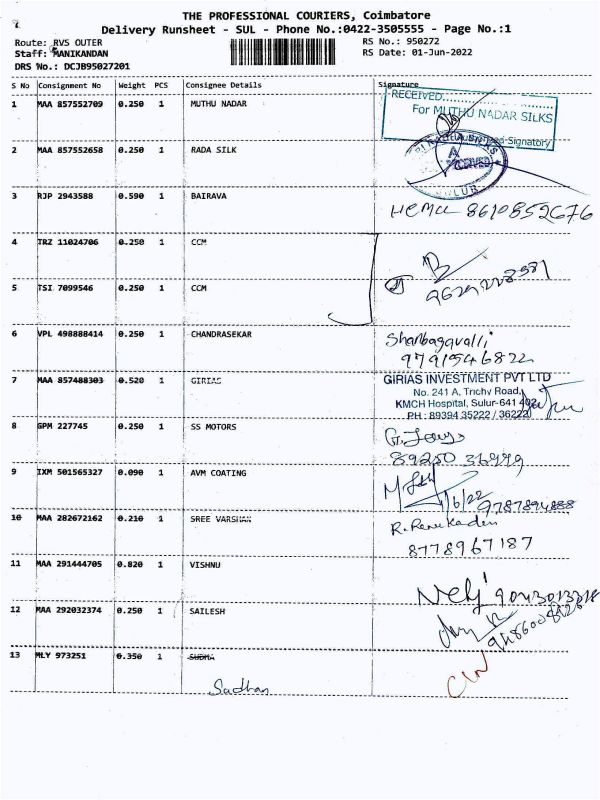 THE PROFESSIONAL COURIERS, Coimbatore
Delivery Runsheet - SUL - Phone No.:0422-3505555 - Page No.:1
Route: RVS OUTER
RS No.: 950272
Staff: MANIKANDAN
RS Date: 01-Jun-2022
DRS No.: DCJB95027201
S No Consignment No Weight PCS Consignee Details Signature
1 MAA 857552709 0.250 1 MUTHU NADAR
RECEIVED
For MUTHU NADAR SILKS
Signatory
2 MAA 857552658 0.250 1 RADA SILK
SULUR
3 RJP 2943588 0.590 1 BAIRAVA
8610852676
4 TRZ 11024706 0.250 1 CCM
5 TSI 7099546 0.250 1 CCM
6 VPL 498888414 0.250 1 CHANDRASEKAR
Shanbagavalli
9791546822
7 MAA 857488303 0.520 1 GIRIAS
GIRIAS INVESTMENT PVT LTD
No. 241 A, Trichy Road,
KMCH Hospital, Sulur-641 402
PH : 89394 35222 / 36222
8 GPM 227745 0.250 1 SS MOTORS
9 IXM 501565327 0.090 1 AVM COATING
10 MAA 282672162 0.210 1 SREE VARSHAN
8778967187
11 MAA 291444705 0.820 1 VISHNU
12 MAA 292032374 0.250 1 SAILESH
13 MLY 973251 0.350 1 SUDHA
Sudhan